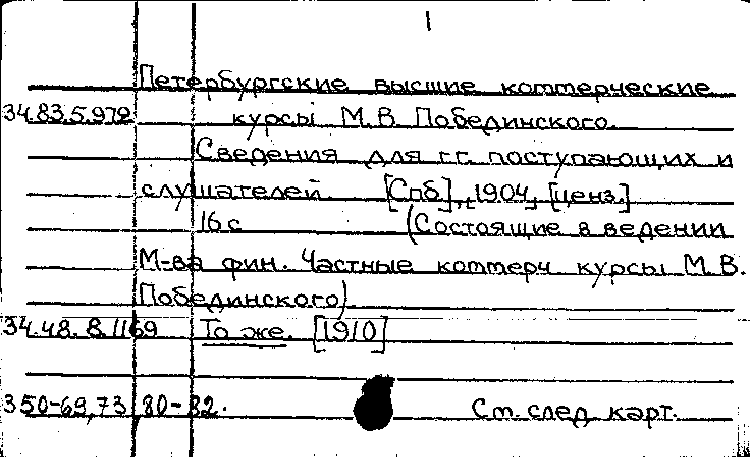 1
Петербургские высшие коммерческие
34.83.5.972 курсы М.В. Побединского.
Сведения для г.г. поступающих и
слушателей [Спб], 1904, [ценз.]
16 с (Состоящие в ведении
М-ва фин. Частные коммерч курсы М.В.
Побединского)
34.48.8.1169 То же. [1910]
350-69,73,80-82.
См. след. карт.